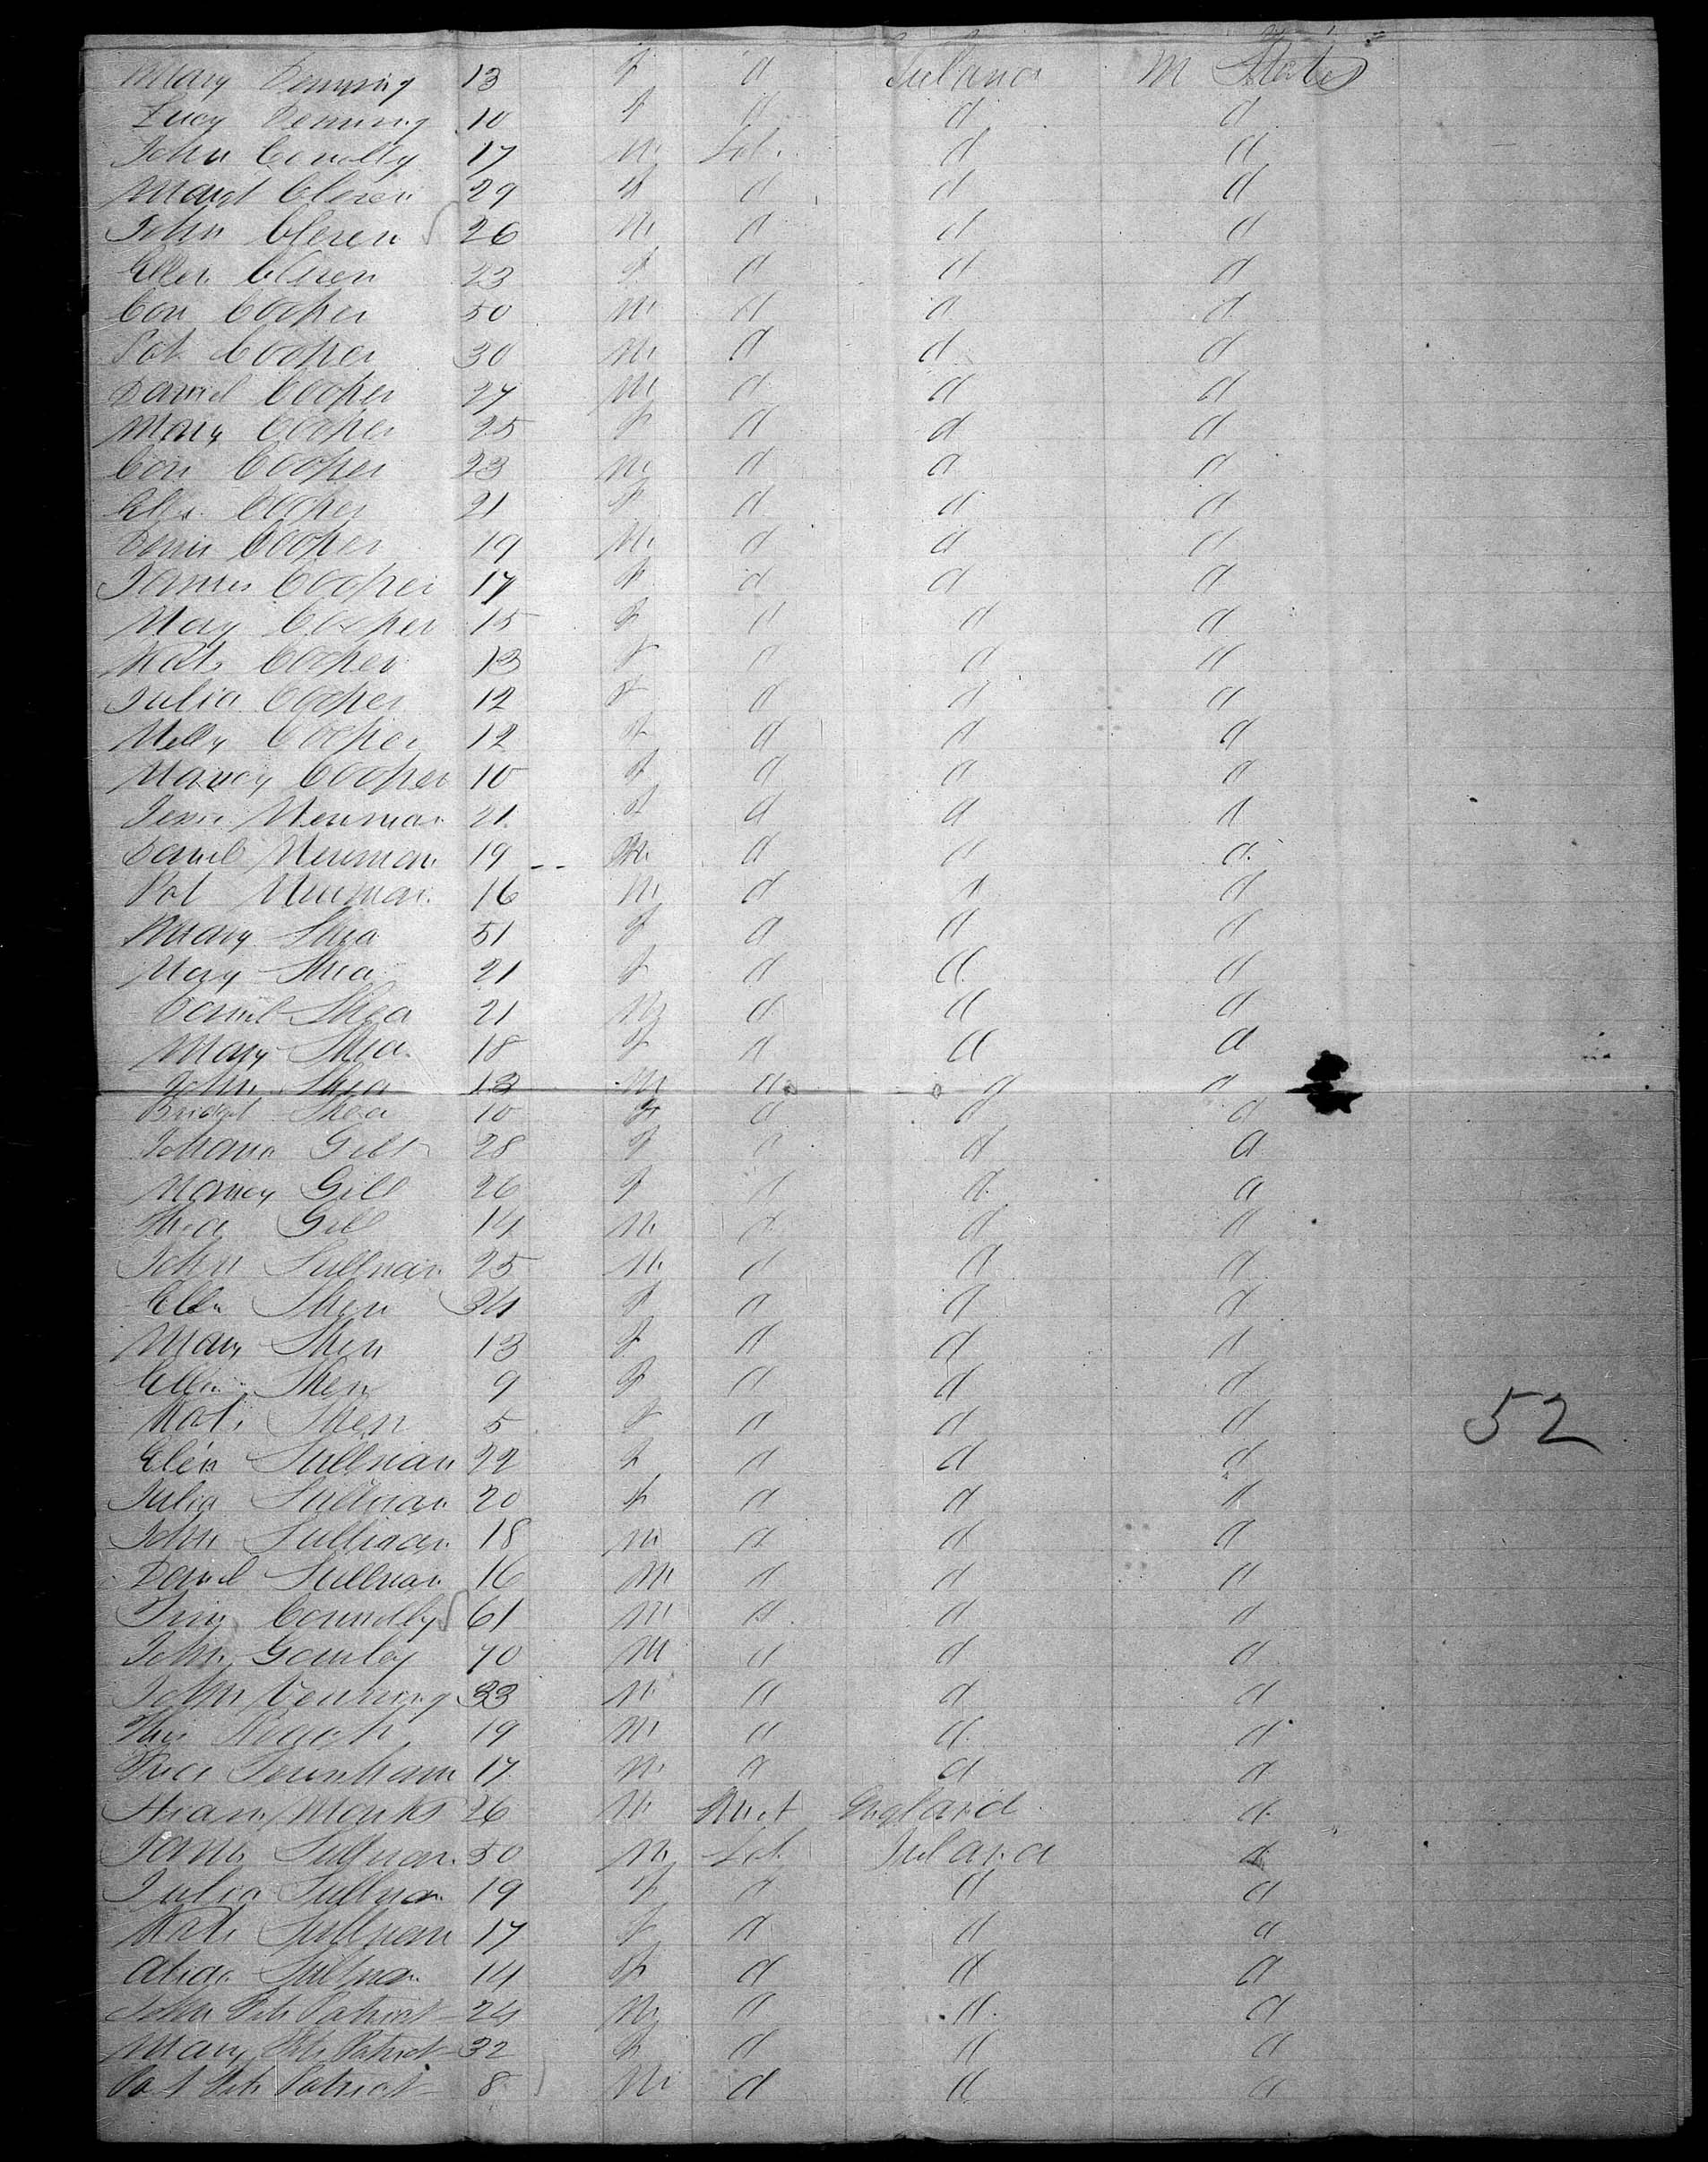 Mary Denning 13 f d Ireland M States
Lucy Denning 10 f d d d
John Conolly 17 m Lab. d d
Margt Cleren 29 f d d d
John Cleren 26 m d d d
Ellen Cleren 23 f d d d
Con Cooper 50 m d d d
Pat Cooper 30 m d d d
Daniel Cooper 27 m d d d
Mary Cooper 25 f d d d
Con Cooper 23 m d d d
Ellen Cooper 21 f d d d
Denis Cooper 19 m d d d
James Cooper 17 f d d d
Mary Cooper 15 f d d d
Kate Cooper 13 f d d d
Julia Cooper 12 f d d d
Nelly Cooper 12 f d d d
Nancy Cooper 10 f d d d
Newman 21 f d d d
Daniel Newman 19 m d d d
Pat Newman 16 m d d d
Mary Shea 51 f d d d
Mary Shea 21 f d d d
Daniel Shea 21 m d d d
Mary Shea 18 f d d d
John Shea 13 m d d d
Bridget Shea 10 f d d d
Johana Gill 28 f d d d
Nancy Gill 26 f d d d
Gill 14 m d d d
John Sullivan 25 m d d d
Ellen Shea 34 f d d d
Mary Shea 13 f d d d
Ellen Shea 9 f d d d
Kate Shea 5 f d d d
Ellen Sullivan 22 f d d d
Julia Sullivan 20 f d d d
John Sullivan 18 m d d d
Daniel Sullivan 16 m d d d
Tim Connolly 61 m d d d
John Gourley 40 m d d d
John Denning 33 m d d d
19 m d d d
17 m d d d
Hiram Monks 26 m England d
James Sullivan 50 m Lab Ireland d
Julia Sullivan 19 f d d d
Kate Sullivan 17 f d d d
Sullivan 14 f d d d
John Fitz Patrick 24 m d d d
52
Mary Fitz Patrick 32 f d d d
Pat Fitz Patrick 8 m d d d